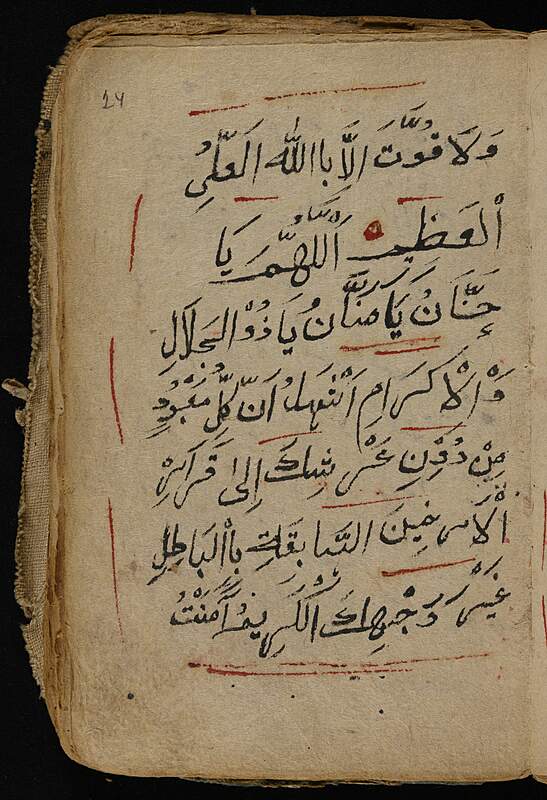 24
وَلَا قُوَّتَ اِلَّا بِااللّٰهِ الْعَلِىُّ
الْعَظِيمِ اَللّٰهُمَّ يَا
حَنَّانُ يَا مَنَّانُ يَا ذُوْالْجَلَالِ
وَالْاِكْرَامِ اَشْهَدُ اَنَّ كُلَّ مَعْبُوْدٍ
مِنْ دُوْنِ عَرْشِكَ اِلىٰ قَرَارِ
الْاَرَضِينَ السَّابِقَةِ بِاْلبَاطِلِ
غَيْرَ وَجْهِكَ الْكَرِيمُ اٰمَنْتُ